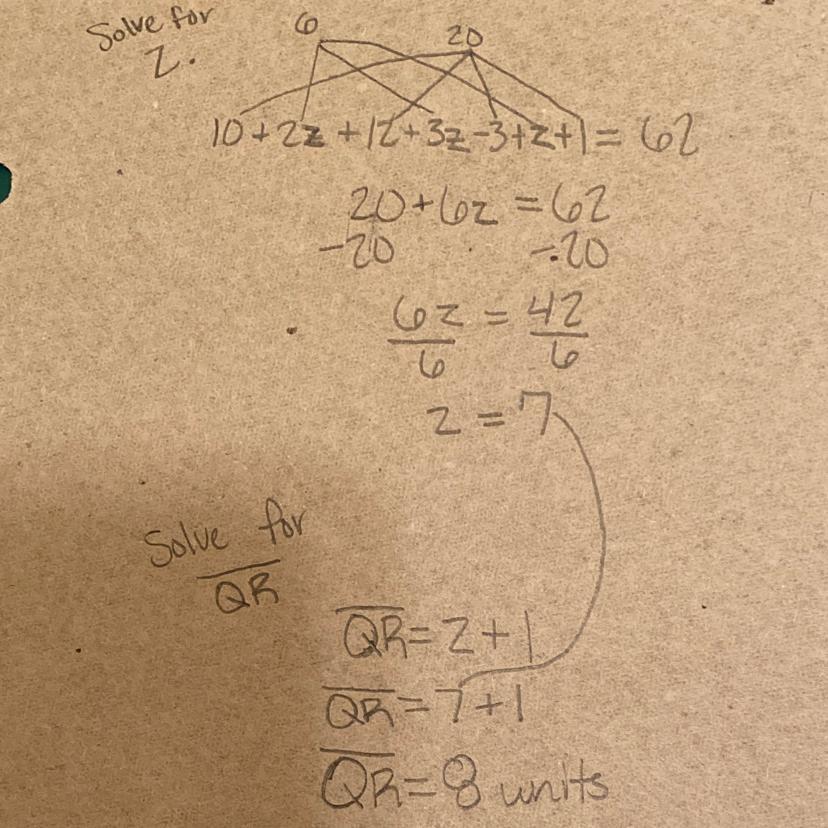 Solve for
Z.
6 20
10+2z+12+3z-3+z+1=62
20+6z=62
-20 -20
6z = 42
6 6
z = 7
Solve for
QR
QR=z+1
QR=7+1
QR=8 units